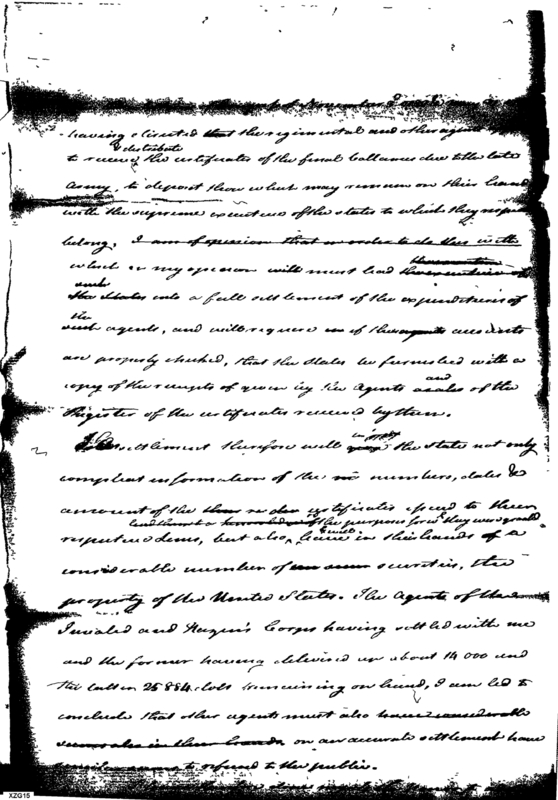 of November
having directed that the regimental and other agents
& distribute
to receive the certificates of the final ballances due to the late
Army, to deposit those which may remain on their hand
with the supreme executive of the states to which they
belong, I am of opinion that in order to do this with
which in my opinion will must lead the execution of
such
the States into a full settlement of the expenditures of
the
such agents, and will require of the agents accounts
are properly checked, that the States be furnished with a
and
copy of the receipts given by the Agents of the
Register of the certificates received by them.
settlement therefore will the state not only
compleat information of the numbers, dates &
amount of the certificates issued to their
the purposes for which they were
respective lines, but also leave in their hands a
considerable number of securities, the
property of the United States. The Agents of the
Invalid and Hazen's Corps having settled with me
and the former having delivered up about 14 000 and
the latter 25 884 dols remaining on hand, I am led to
conclude that other agents must also have considerable
sums also in their hands on an accurate settlement have
similar sums to refund to the public.
XZG15